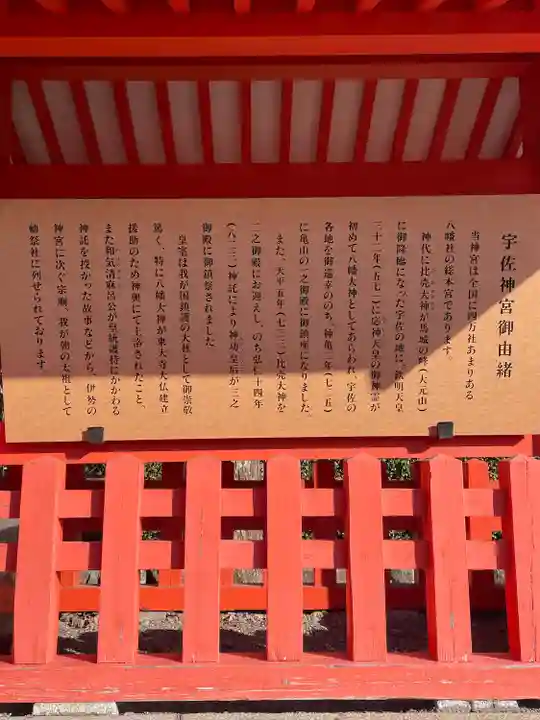 宇佐神宮御由緒
当神宮は全国に四万社あまりある
八幡社の総本宮であります。
神代に比売大神が馬城の峰（大元山）
に御降臨になった宇佐の地に、欽明天皇
三十二年（五七一）に応神天皇の御神霊が
初めて八幡大神としてあらわれ、宇佐の
各地を御巡幸ののち、神亀二年（七二五）
に亀山の一之御殿に御鎮座になりました。
また、天平五年（七三三）比売大神を
二之御殿にお迎えし、のち弘仁十四年
（八二三）神託により神功皇后が三之
御殿に御鎮祭されました
皇室は我が国鎮護の大社として御崇敬
篤く、特に八幡大神が東大寺大仏建立
援助のため神輿にて上洛されたこと、
また和気清麻呂公が皇統護持にかかわる
神託を授かった故事などから、伊勢の
神宮に次ぐ宗廟、我が朝の太祖として
勅祭社に列せられております